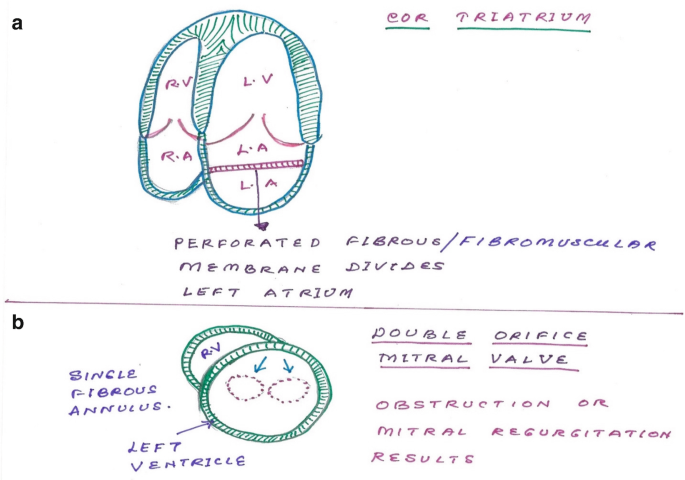 a
COR TRIATRIUM
R.V
L.V
R.A
L.A
L.A
PERFORATED FIBROUS/FIBROMUSCULAR
MEMBRANE DIVIDES
LEFT ATRIUM
b
DOUBLE ORIFICE
MITRAL VALVE
RV
SINGLE
FIBROUS
ANNULUS.
OBSTRUCTION OR
MITRAL REGURGITATION
RESULTS
LEFT
VENTRICLE